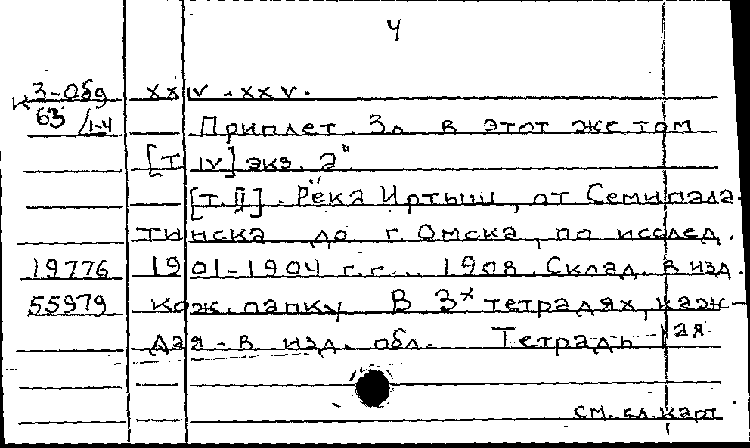 4
3-Обд XXIV-XXV.
К 63/1-4 Приплет. Зд в этот же том
[т. IV] экз. 2"
[т. II]. Река Иртыш, от Семипала-
тинска до г. Омска, по исслед.
19776 1901-1904 г.г... 1908. Склад. в изд.
55979 кож. папку. В 3х тетрадях, каж-
дая - в изд. обл. Тетрадь 1ая
см. сл. карт.